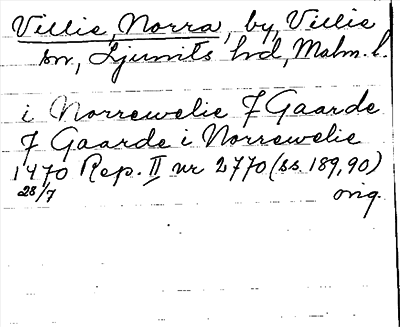 Villie, Norra, by, Villie
sn, Ljunits hd, Malm. l.
i Norrewelie J Gaarde
J Gaarde i Norrewelie
1470 Rep. II nr 2770 (ss. 189, 90)
28/7 orig.